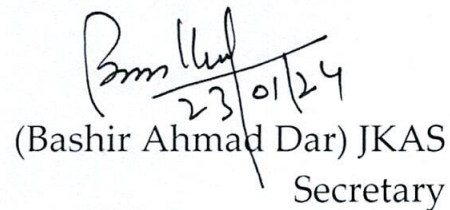 23/01/24
(Bashir Ahmad Dar) JKAS
Secretary